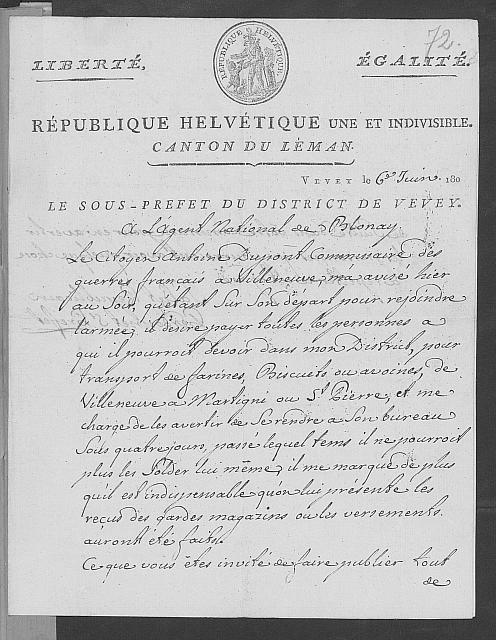 72.
RÉPUBLIQUE HELVÉTIQUE
LIBERTÉ, ÉGALITÉ.
RÉPUBLIQUE HELVÉTIQUE UNE ET INDIVISIBLE.
CANTON DU LÉMAN.
VEVEY le 6e Juin. 180
LE SOUS-PREFET DU DISTRICT DE VEVEY.
A l'Agent National de Blonay
Le Citoyen Antoine Dupont Commissaire des
guerres français à Villeneuve, m'a avisé hier
au Soir, qu'étant Sur Son départ pour rejoindre
l'armée, il désire payer toutes les personnes a
qui il pourroit devoir dans mon District, pour
transport de farines, Biscuits ou avoines, de
Villeneuve à Martigni ou St Pierre, et me
charge de les avertir de Se rendre a Son bureau
Sous quatre jours, passé lequel tems il ne pourroit
plus les Solder lui même, il me marque de plus
qu'il est indispensable qu'on lui présente les
reçus des gardes magazins ou les versements
auront été faits.
Ce que vous êtes invité de faire publier tout
de